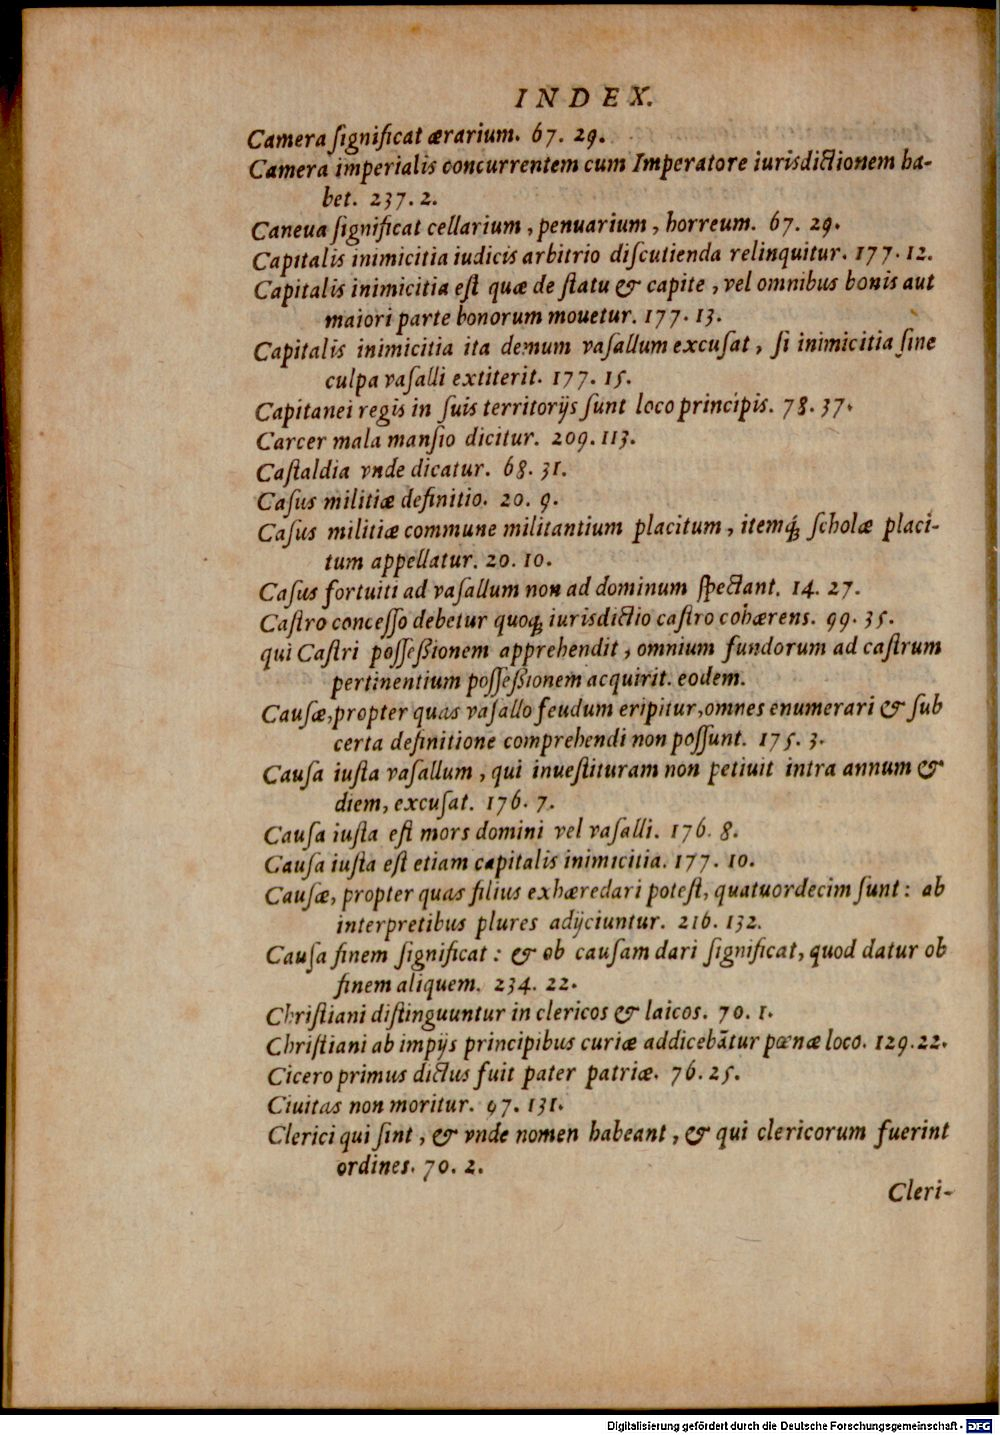 INDEX.
Camera ſignificat ærarium. 67. 29.
Camera imperialis concurrentem cum Imperatore iurisdictionem ha-
bet. 237. 2.
Caneua ſignificat cellarium, penuarium, horreum. 67. 29.
Capitalis inimicitia iudicis arbitrio diſcutienda relinquitur. 177. 12.
Capitalis inimicitia eſt quæ de ſtatu & capite, vel omnibus bonis aut
maiori parte bonorum mouetur. 177. 13.
Capitalis inimicitia ita demum vaſallum excuſat, ſi inimicitia ſine
culpa vaſalli extiterit. 177. 15.
Capitanei regis in ſuis territorijs ſunt loco principis. 78. 37.
Carcer mala manſio dicitur. 209. 113.
Caſtaldia vnde dicatur. 68. 31.
Caſus militiæ definitio. 20. 9.
Caſus militiæ commune militantium placitum, itemq́; ſcholæ placi-
tum appellatur. 20. 10.
Caſus fortuiti ad vaſallum non ad dominum ſpectant. 14. 27.
Caſtro conceſſo debetur quoq; iurisdictio caſtro cohærens. 99. 35.
qui Caſtri poſſeßionem apprehendit, omnium fundorum ad caſtrum
pertinentium poſſeßionem acquirit. eodem.
Cauſæ, propter quas vaſallo feudum eripitur, omnes enumerari & ſub
certa definitione comprehendi non poſſunt. 175. 3.
Cauſa iuſta vaſallum, qui inueſtituram non petiuit intra annum &
diem, excuſat. 176. 7.
Cauſa iuſta eſt mors domini vel vaſalli. 176. 8.
Cauſa iuſta eſt etiam capitalis inimicitia. 177. 10.
Cauſæ, propter quas filius exhæredari poteſt, quatuordecim ſunt: ab
interpretibus plures adijciuntur. 216. 132.
Cauſa finem ſignificat: & ob cauſam dari ſignificat, quod datur ob
finem aliquem. 234. 22.
Chriſtiani diſtinguuntur in clericos & laicos. 70. 1.
Chriſtiani ab impijs principibus curiæ addicebātur pœnæ loco. 129. 22.
Cicero primus dictus fuit pater patriæ. 76. 25.
Ciuitas non moritur. 97. 131.
Clerici qui ſint, & vnde nomen habeant, & qui clericorum fuerint
ordines. 70. 2.
Cleri-
Digitalisierung gefördert durch die Deutsche Forschungsgemeinschaft - DFG